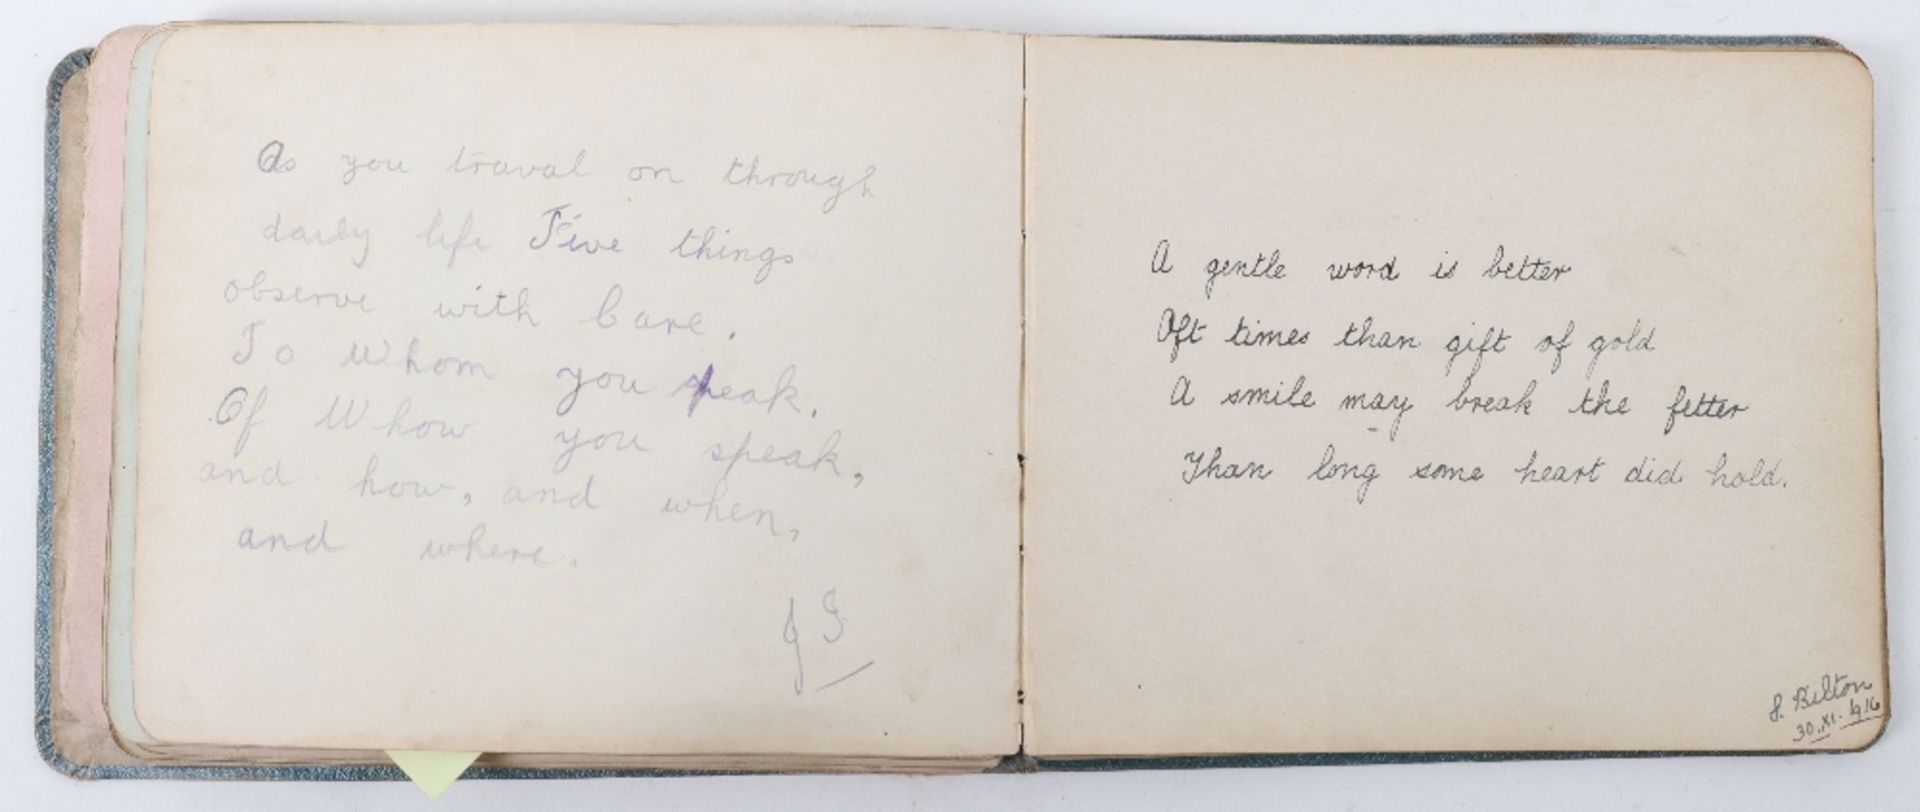 As you traval on through
daily life Five things
observe with Care.
To Whom you speak.
Of Whow you speak,
and how, and when,
and where.
J G
A gentle word is better
Oft times than gift of gold
A smile may break the fetter
Than long some heart did hold.
S. Bilton
30.XI.1916